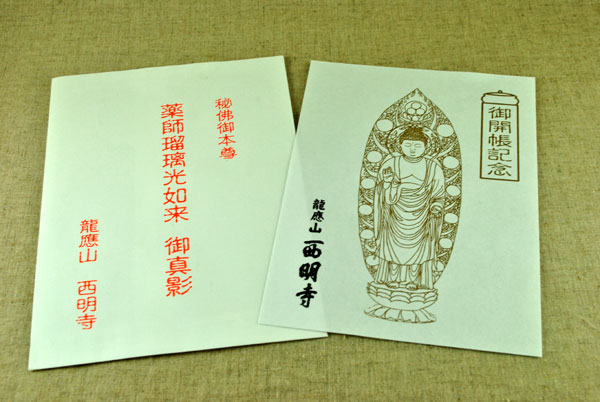 秘佛御本尊
薬師瑠璃光如来 御真影
龍應山 西明寺
御開帳記念
龍應山 西明寺